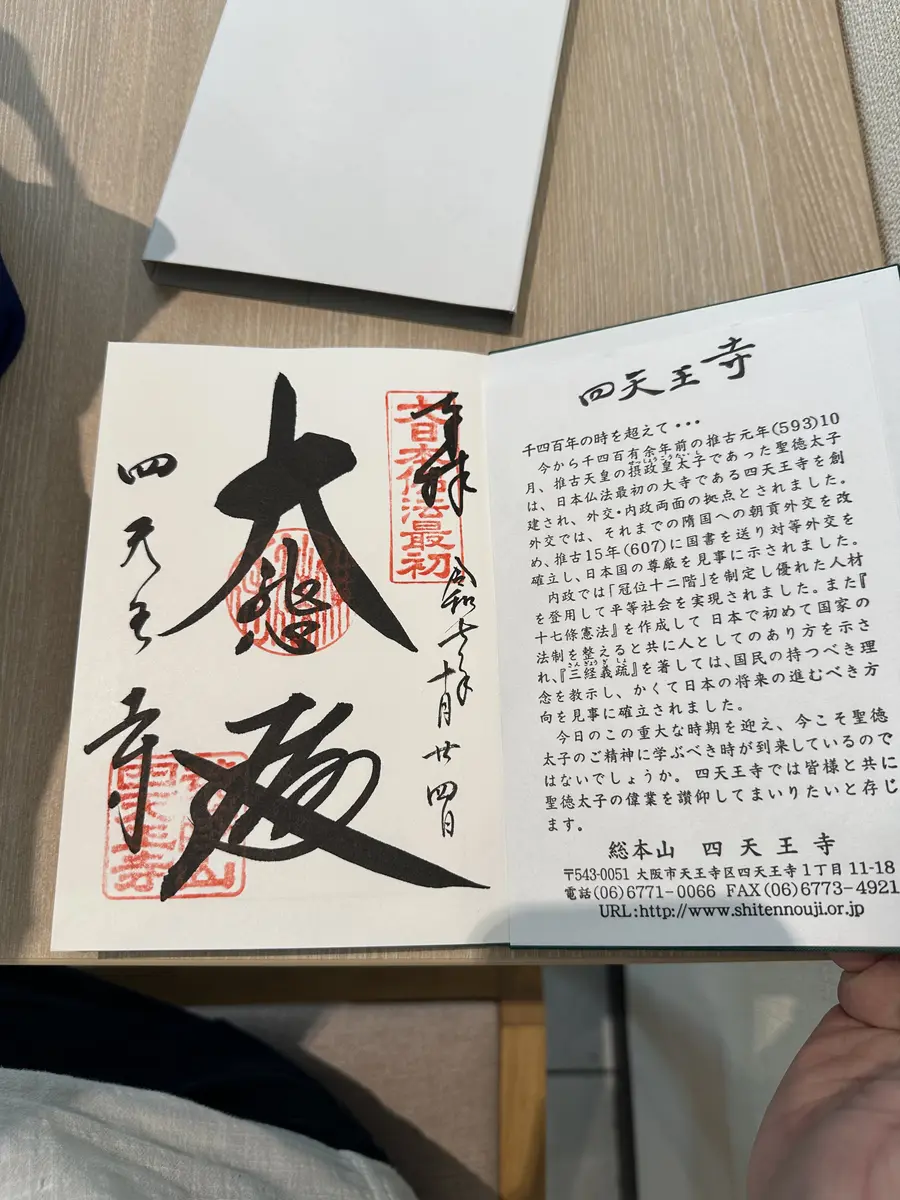 奉拝
大日本仏法最初
令和七年十月廿四日
大悲殿
四天王寺
四天王寺
四天王寺
千四百年の時を超えて・・・
今から千四百有余年前の推古元年(593)10
月、推古天皇の摂政皇太子であった聖徳太子
は、日本仏法最初の大寺である四天王寺を創
建され、外交・内政両面の拠点とされました。
外交では、それまでの隋国への朝貢外交を改
め、推古15年(607)に国書を送り対等外交を
確立し、日本国の尊厳を見事に示されました。
内政では「冠位十二階」を制定し優れた人材
を登用して平等社会を実現されました。また『
十七條憲法』を作成して 日本で初めて国家の
法制を整えると共に人としてのあり方を示さ
れ、『三経義疏』を著しては、国民の持つべき理
念を教示し、かくて日本の将来の進むべき方
向を見事に確立されました。
今日のこの重大な時期を迎え、今こそ聖徳
太子のご精神に学ぶべき時が到来しているので
はないでしょうか。四天王寺では皆様と共に
聖徳太子の偉業を讃仰してまいりたいと存じ
ます。
総本山 四天王寺
〒543-0051 大阪市天王寺区四天王寺1丁目11-18
電話(06)6771-0066 FAX(06)6773-4921
URL:http://www.shitennouji.or.jp